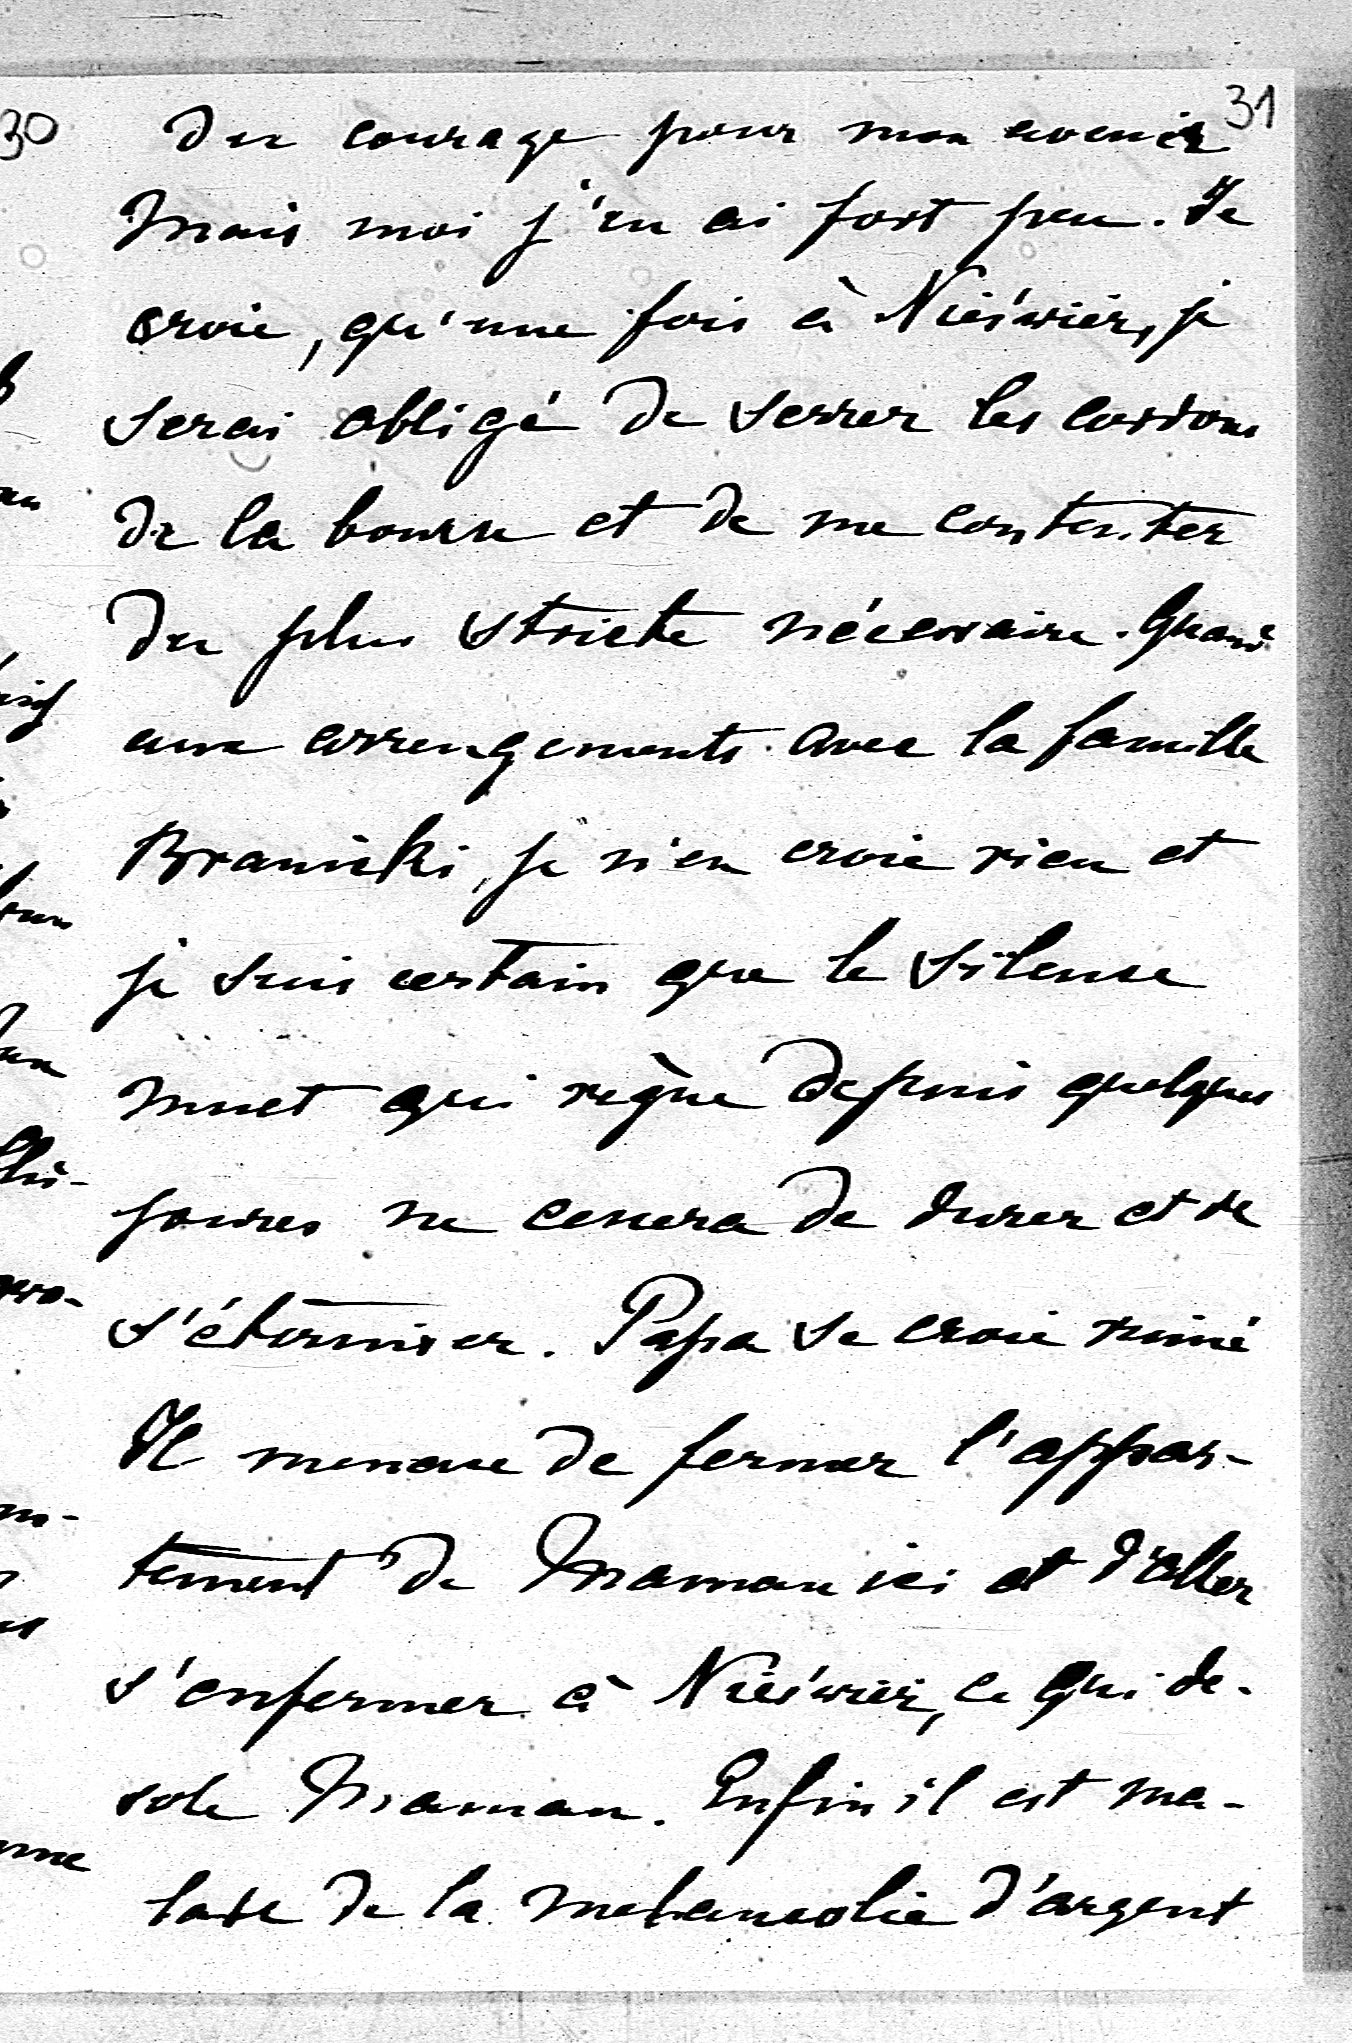 31
30
du courage pour mon avenir
Mais moi j'en ai fort peu. Je
croie, qu'une fois à Nieśwież, je
serai obligé de serrer les cordons
de la bourse et de me contenter
du plus stricte nécessaire. Quand
aux arrengements avec la famille
Branicki, je n'en croie rien et
je suis certain que le silense
muet qui règne depuis quelques
joures ne cessera de durer et de
s'éterniser. Papa se croie ruiné
Il menace de fermer l'appar-
tement de Maman ici et d'aller
s'enfermer à Nieśwież, ce qui de-
sole Maman. Enfin il est ma-
lade de la melancolie d'argent